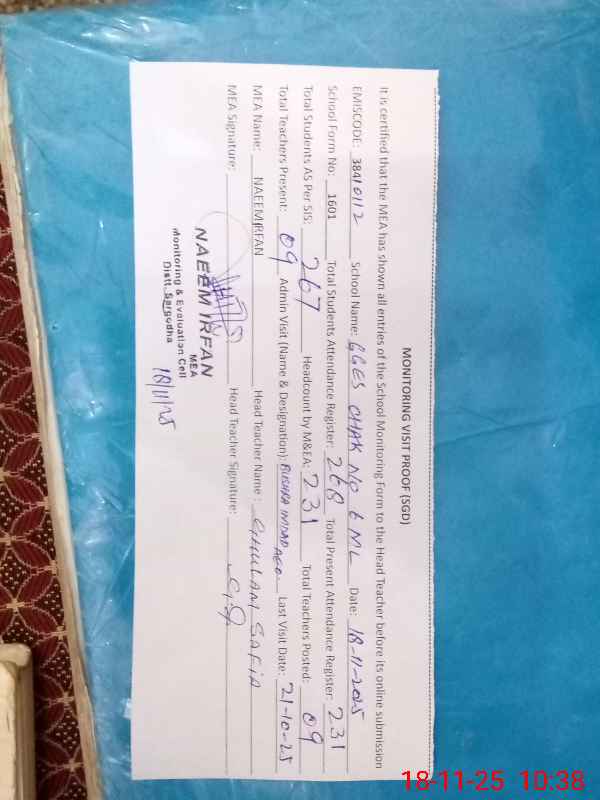 MONITORING VISIT PROOF (SGD)
It is certified that the MEA has shown all entries of the School Monitoring Form to the Head Teacher before its online submission
EMISCODE: 38410112 School Name: GGES CHAK NO 6 ML Date: 18-11-2025
School Form No: 1601 Total Students Attendance Register: 268 Total Present Attendance Register: 231
Total Students AS Per SIS: 267 Headcount by M&EA: 231 Total Teachers Posted: 09
Total Teachers Present: 09 Admin Visit (Name & Designation): BUSHRA IMDAD AEO Last Visit Date: 21-10-25
MEA Name: NAEEM IRFAN Head Teacher Name : GHULAM SAFIA
MEA Signature: Head Teacher Signature:
NAEEM IRFAN
MEA
Monitoring & Evaluation Cell
Distt. Sargodha
18/11/25
18-11-25 10:38